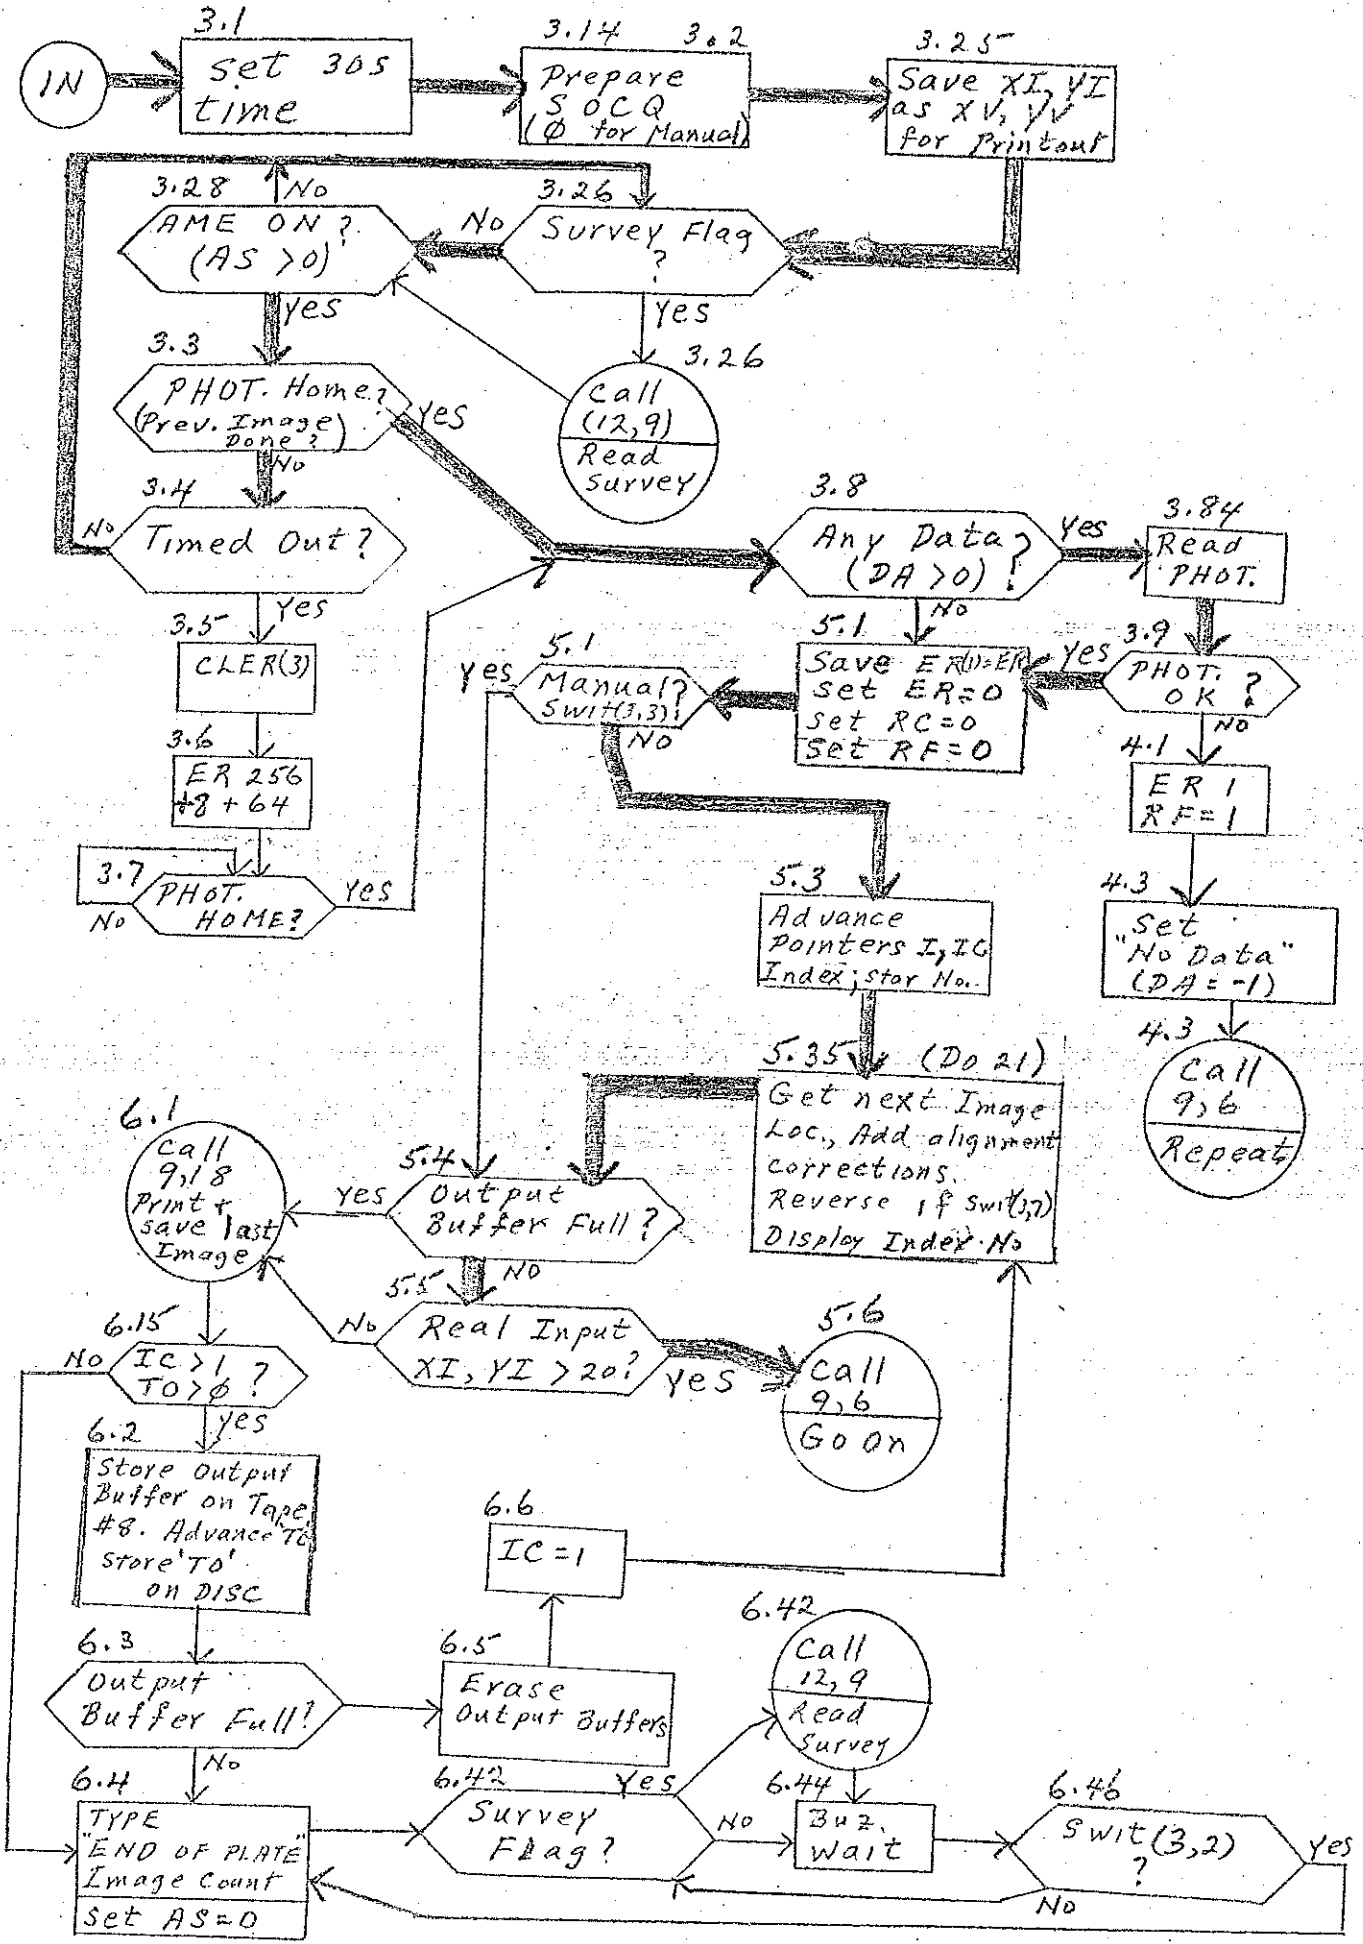 3.1
IN
set 30s
time
3.14 3.2
Prepare
S O C Q
(Ø for Manual)
3.25
Save XI, YI
as XV, YV
for Printout
3.28
No
AME ON?
(AS >0)
Yes
3.26
No
Survey Flag
?
Yes
3.26
Call
(12,9)
Read
Survey
3.3
PHOT. Home?
(Prev. Image
Done?)
Yes
No
3.4
No
Timed Out?
Yes
3.5
CLER(3)
3.6
ER 256
+8 + 64
3.7
PHOT.
HOME?
No
Yes
3.8
Any Data?
(DA >0)
Yes
No
3.84
Read
PHOT.
3.9
Yes
PHOT.
OK ?
No
4.1
ER 1
RF=1
4.3
Set
"No Data"
(DA = -1)
4.3
Call
9,6
Repeat
5.1
Save ER(1)=ER
Set ER=0
Set RC=0
Set RF=0
5.1
Yes
Manual?
Swit(3,3)?
No
5.3
Advance
Pointers I, IC
Index; Star No.
5.35 (Do 21)
Get next Image
Loc., Add alignment
corrections.
Reverse if Swit(3,7)
Display Index No
5.4
Yes
Output
Buffer Full?
No
6.1
Call
9,18
Print +
save last
Image
5.5
No
Real Input
XI, YI >20?
Yes
5.6
Call
9,6
Go On
6.15
No
IC >1
TO>Ø ?
Yes
6.2
Store Output
Buffer on Tape
#8. Advance TO
Store 'TO'
on DISC
6.3
Output
Buffer Full?
No
6.5
Erase
Output Buffers
6.6
IC =1
6.4
TYPE
"END OF PLATE"
Image Count
Set AS=0
6.42
Survey
Flag?
Yes
No
6.42
Call
12,9
Read
Survey
6.44
Buz.
Wait
6.46
Swit(3,2)
?
Yes
No